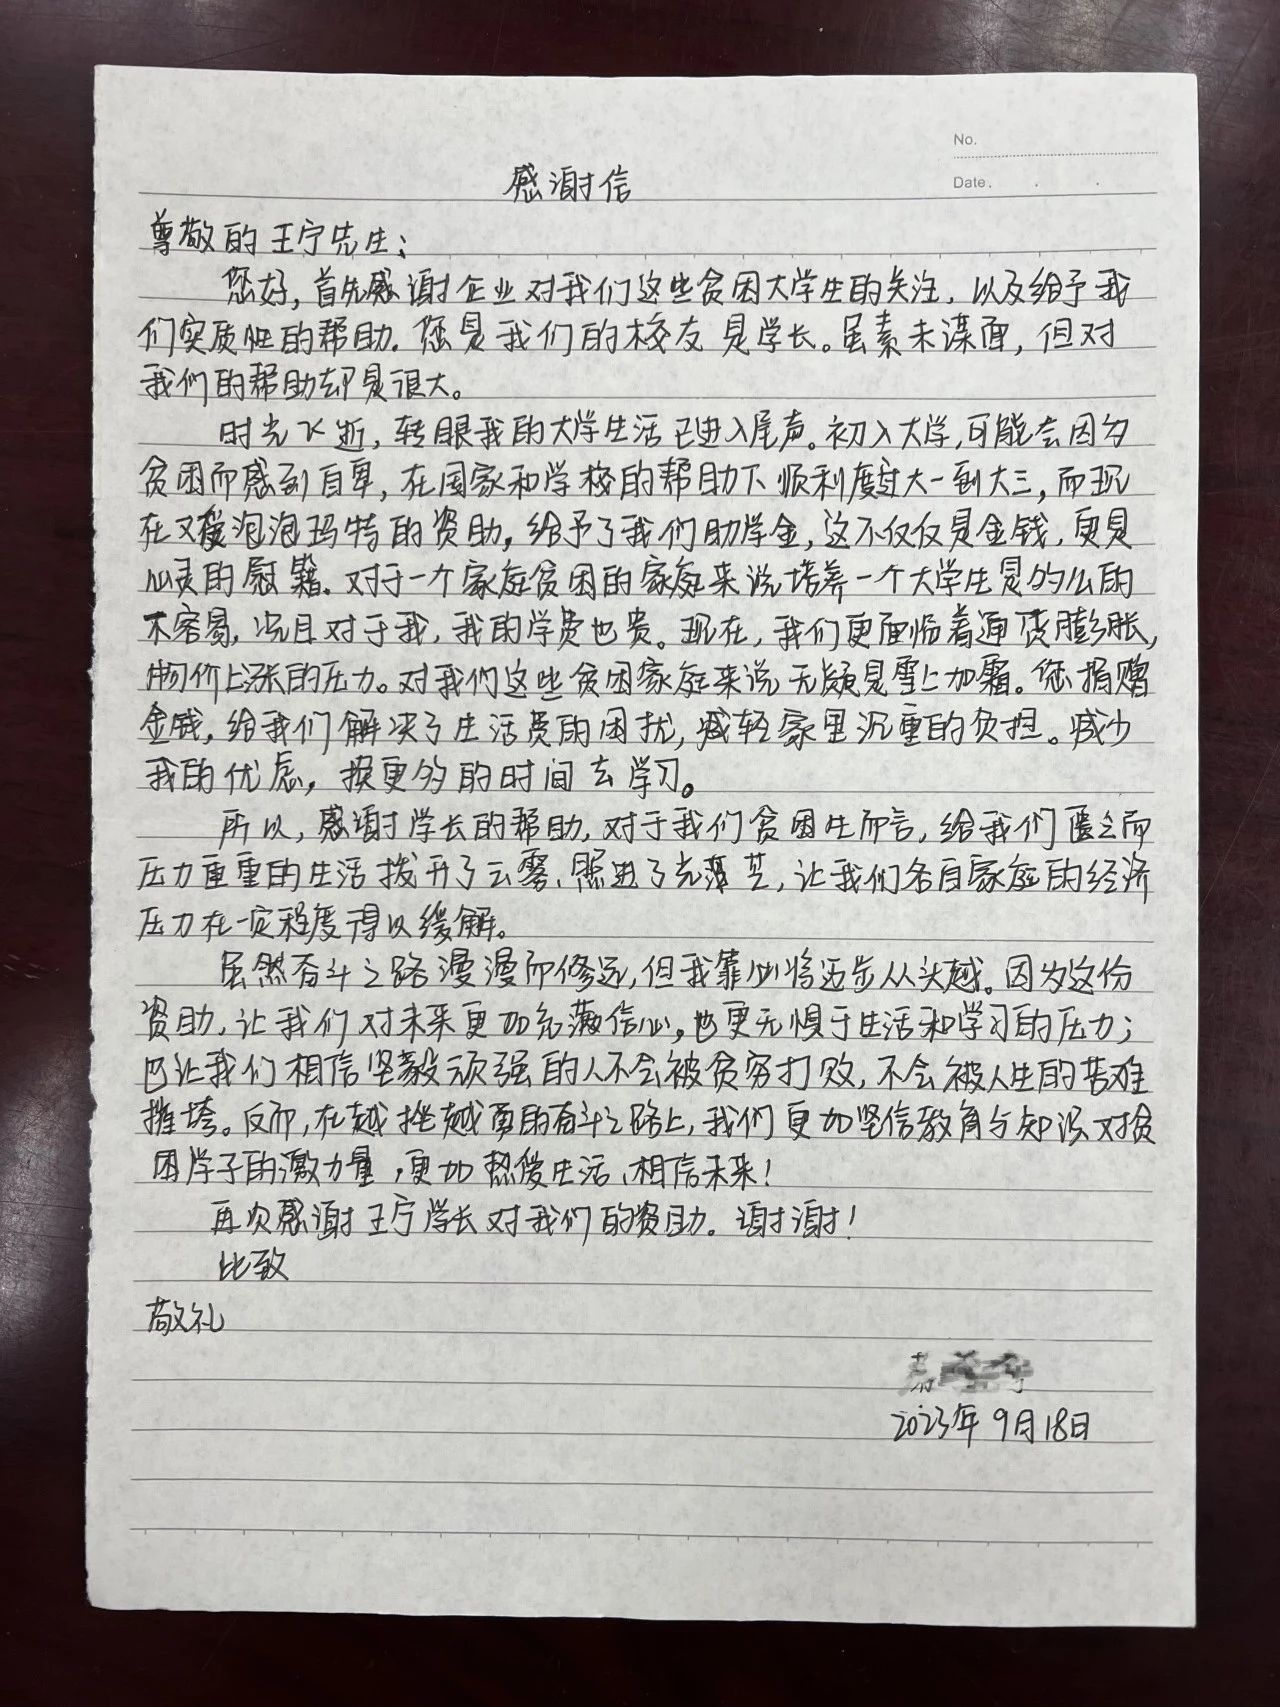 No.
Date. . .
感谢信
尊敬的王宁先生:
您好,首先感谢企业对我们这些贫困大学生的关注,以及给予我
们实质性的帮助.您是我们的校友 是学长。虽素未谋面,但对
我们的帮助却是很大。
时光飞逝,转眼我的大学生活已进入尾声.初入大学,可能会因为
贫困而感到自卑,在国家和学校的帮助下顺利度过大一到大三,而现
在又获泡泡玛特的资助,给予了我们助学金,这不仅仅是金钱,更是
心灵的慰籍.对于一个家庭贫困的家庭来说培养一个大学生是多么的
不容易,况且对于我,我的学费也贵。现在,我们更面临着通货膨胀,
物价上涨的压力。对我们这些贫困家庭来说无疑是雪上加霜。您捐赠
金钱,给我们解决了生活费的困扰,减轻家里沉重的负担。减少
我的忧虑,换更多的时间去学习。
所以,感谢学长的帮助,对于我们贫困生而言,给我们匮乏而
压力重重的生活拨开了云雾、照进了光,让我们各自家庭的经济
压力在一定程度得以缓解。
虽然奋斗之路漫漫而修远,但我辈必将迈步从头越。因为这份
资助,让我们对未来更加充满信心,也更无惧于生活和学习的压力;
也让我们相信坚毅顽强的人不会被贫穷打败,不会被人生的苦难
摧垮。反而,在越挫越勇的奋斗之路上,我们更加坚信教育与知识对贫
困学子的激力量,更加热爱生活、相信未来!
再次感谢王宁学长对我们的资助。谢谢!
此致
敬礼
2023年9月18日